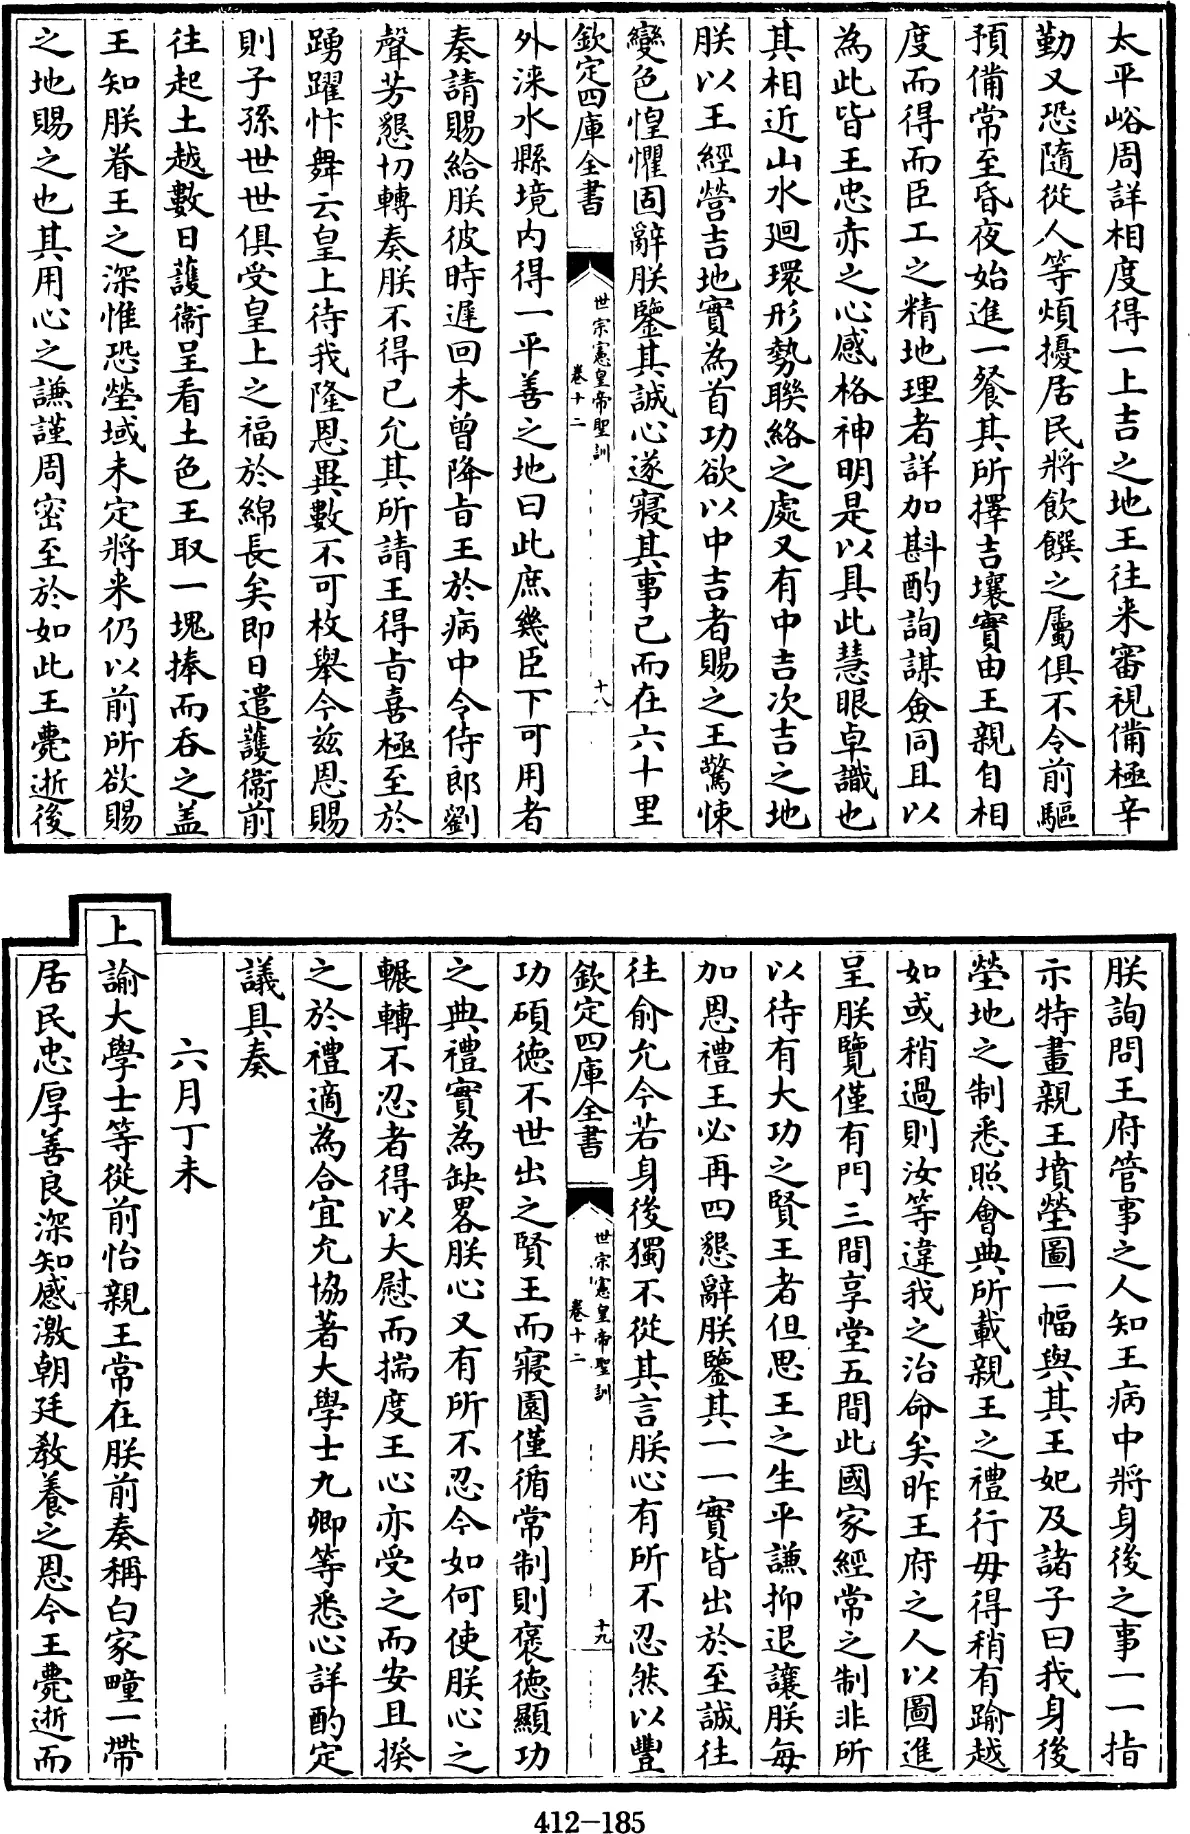 太平峪周詳相度得一上吉之地王往来審視備極辛
勤又恐隨從人等煩擾居民將飲饌之屬俱不令前驅
預備常至昏夜始進一餐其所擇吉壤實由王親自相
度而得而臣工之精地理者詳加斟酌詢謀僉同且以
為此皆王忠赤之心感格神明是以具此慧眼卓識也
其相近山水廻環形勢聯絡之處又有中吉次吉之地
朕以王經營吉地實為首功欲以中吉者賜之王驚悚
變色惶懼固辭朕鑒其誠心遂寢其事已而在六十里
欽定四庫全書
世宗憲皇帝聖訓
卷十二
十八
外淶水縣境内得一平善之地曰此庶幾臣下可用者
奏請賜給朕彼時遲回未曾降旨王於病中令侍郎劉
聲芳懇切轉奏朕不得已允其所請王得旨喜極至於
踴躍忭舞云皇上待我隆恩異數不可枚舉今兹恩賜
則子孫世世俱受皇上之福於綿長矣即日遣護衞前
往起土越數日護衞呈看土色王取一塊捧而吞之盖
王知朕眷王之深惟恐塋域未定將来仍以前所欲賜
之地賜之也其用心之謙謹周密至於如此王薨逝後
朕詢問王府管事之人知王病中將身後之事一一指
示特畫親王墳塋圖一幅與其王妃及諸子曰我身後
塋地之制悉照會典所載親王之禮行毋得稍有踰越
如或稍過則汝等違我之治命矣昨王府之人以圖進
呈朕覽僅有門三間享堂五間此國家經常之制非所
以待有大功之賢王者但思王之生平謙抑退讓朕每
加恩禮王必再四懇辭朕鑒其一一實皆出於至誠往
往俞允今若身後獨不從其言朕心有所不忍然以豐
欽定四庫全書
世宗憲皇帝聖訓
卷十二
十九
功碩德不世出之賢王而寢園僅循常制則褒德顯功
之典禮實為缺畧朕心又有所不忍今如何使朕心之
輾轉不忍者得以大慰而揣度王心亦受之而安且揆
之於禮適為合宜允協著大學士九卿等悉心詳酌定
議具奏
六月丁未
上諭大學士等從前怡親王常在朕前奏稱白家疃一帶
居民忠厚善良深知感激朝廷教養之恩今王薨逝而
412-185